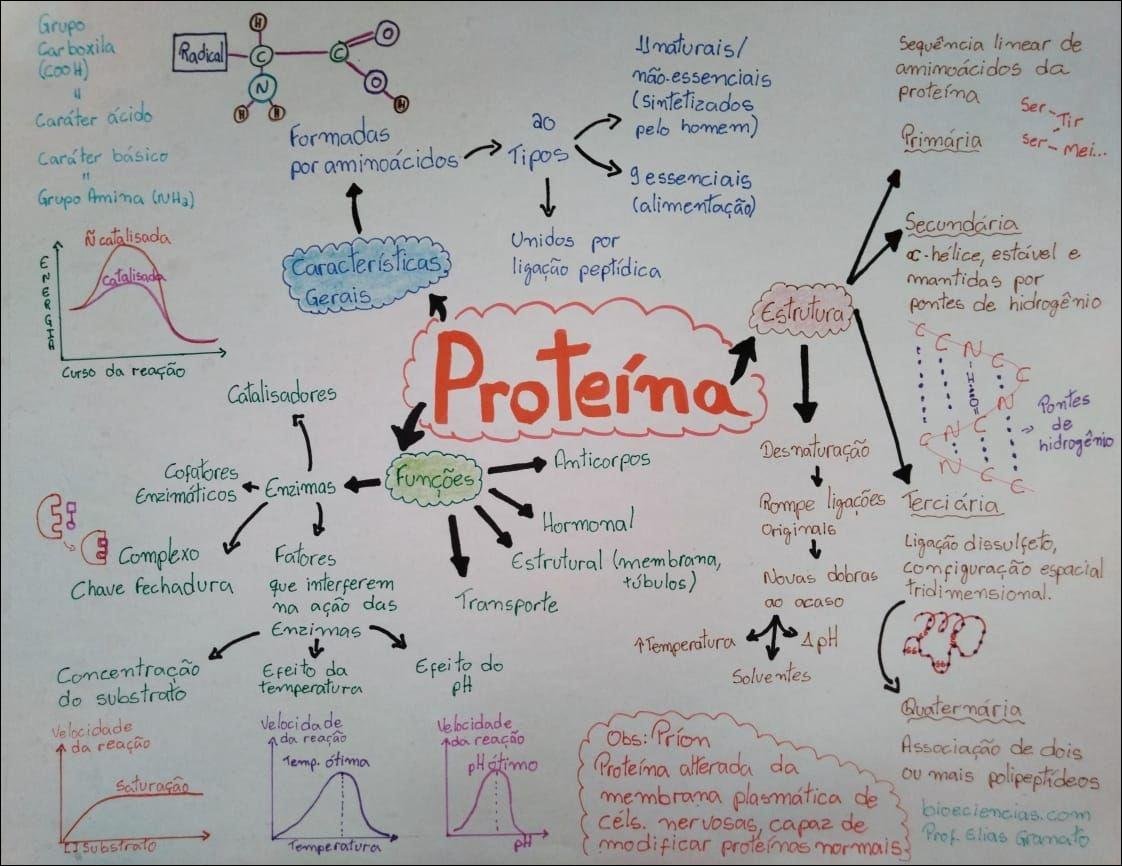 Grupo
Carboxila
(COOH)
=
Caráter ácido
Caráter básico
=
Grupo Amina (NH3)
Radical
H
C
N
H
H
C
O
O
H
Formadas
por aminoácidos
20
Tipos
11 naturais/
não-essenciais
(sintetizados
pelo homem)
9 essenciais
(alimentação)
Unidos por
ligação peptídica
Características
Gerais
ENERGIA
Ñ catalisada
catalisada
Curso da reação
Proteína
Estrutura
Sequência linear de
aminoácidos da
proteína
Ser - Tir
Ser - Mei...
Primária
Secundária
α-hélice, estável e
mantidas por
pontes de hidrogênio
C C N C C
H
O
N
C N C
N C C
Pontes
de
hidrogênio
Terciária
Ligação dissulfeto,
configuração espacial
tridimensional.
Quaternária
Associação de dois
ou mais polipeptídeos
Desnaturação
Rompe ligações
originais
Novas dobras
ao acaso
↑Temperatura
Δ pH
Solventes
Funções
Anticorpos
Hormonal
Estrutural (membrana,
túbulos)
Transporte
Enzimas
Catalisadores
Cofatores
Enzimáticos
Complexo
Chave fechadura
Fatores
que interferem
na ação das
Enzimas
Concentração
do substrato
Efeito da
temperatura
Efeito do
pH
Velocidade
da reação
Saturação
[]Substrato
Velocidade
da reação
Temp. ótima
Temperatura
Velocidade
da reação
pH ótimo
pH
Obs: Príon
Proteína alterada da
membrana plasmática de
céls. nervosas, capaz de
modificar proteínas normais
bioeciencias.com
Prof. Elias Gramato